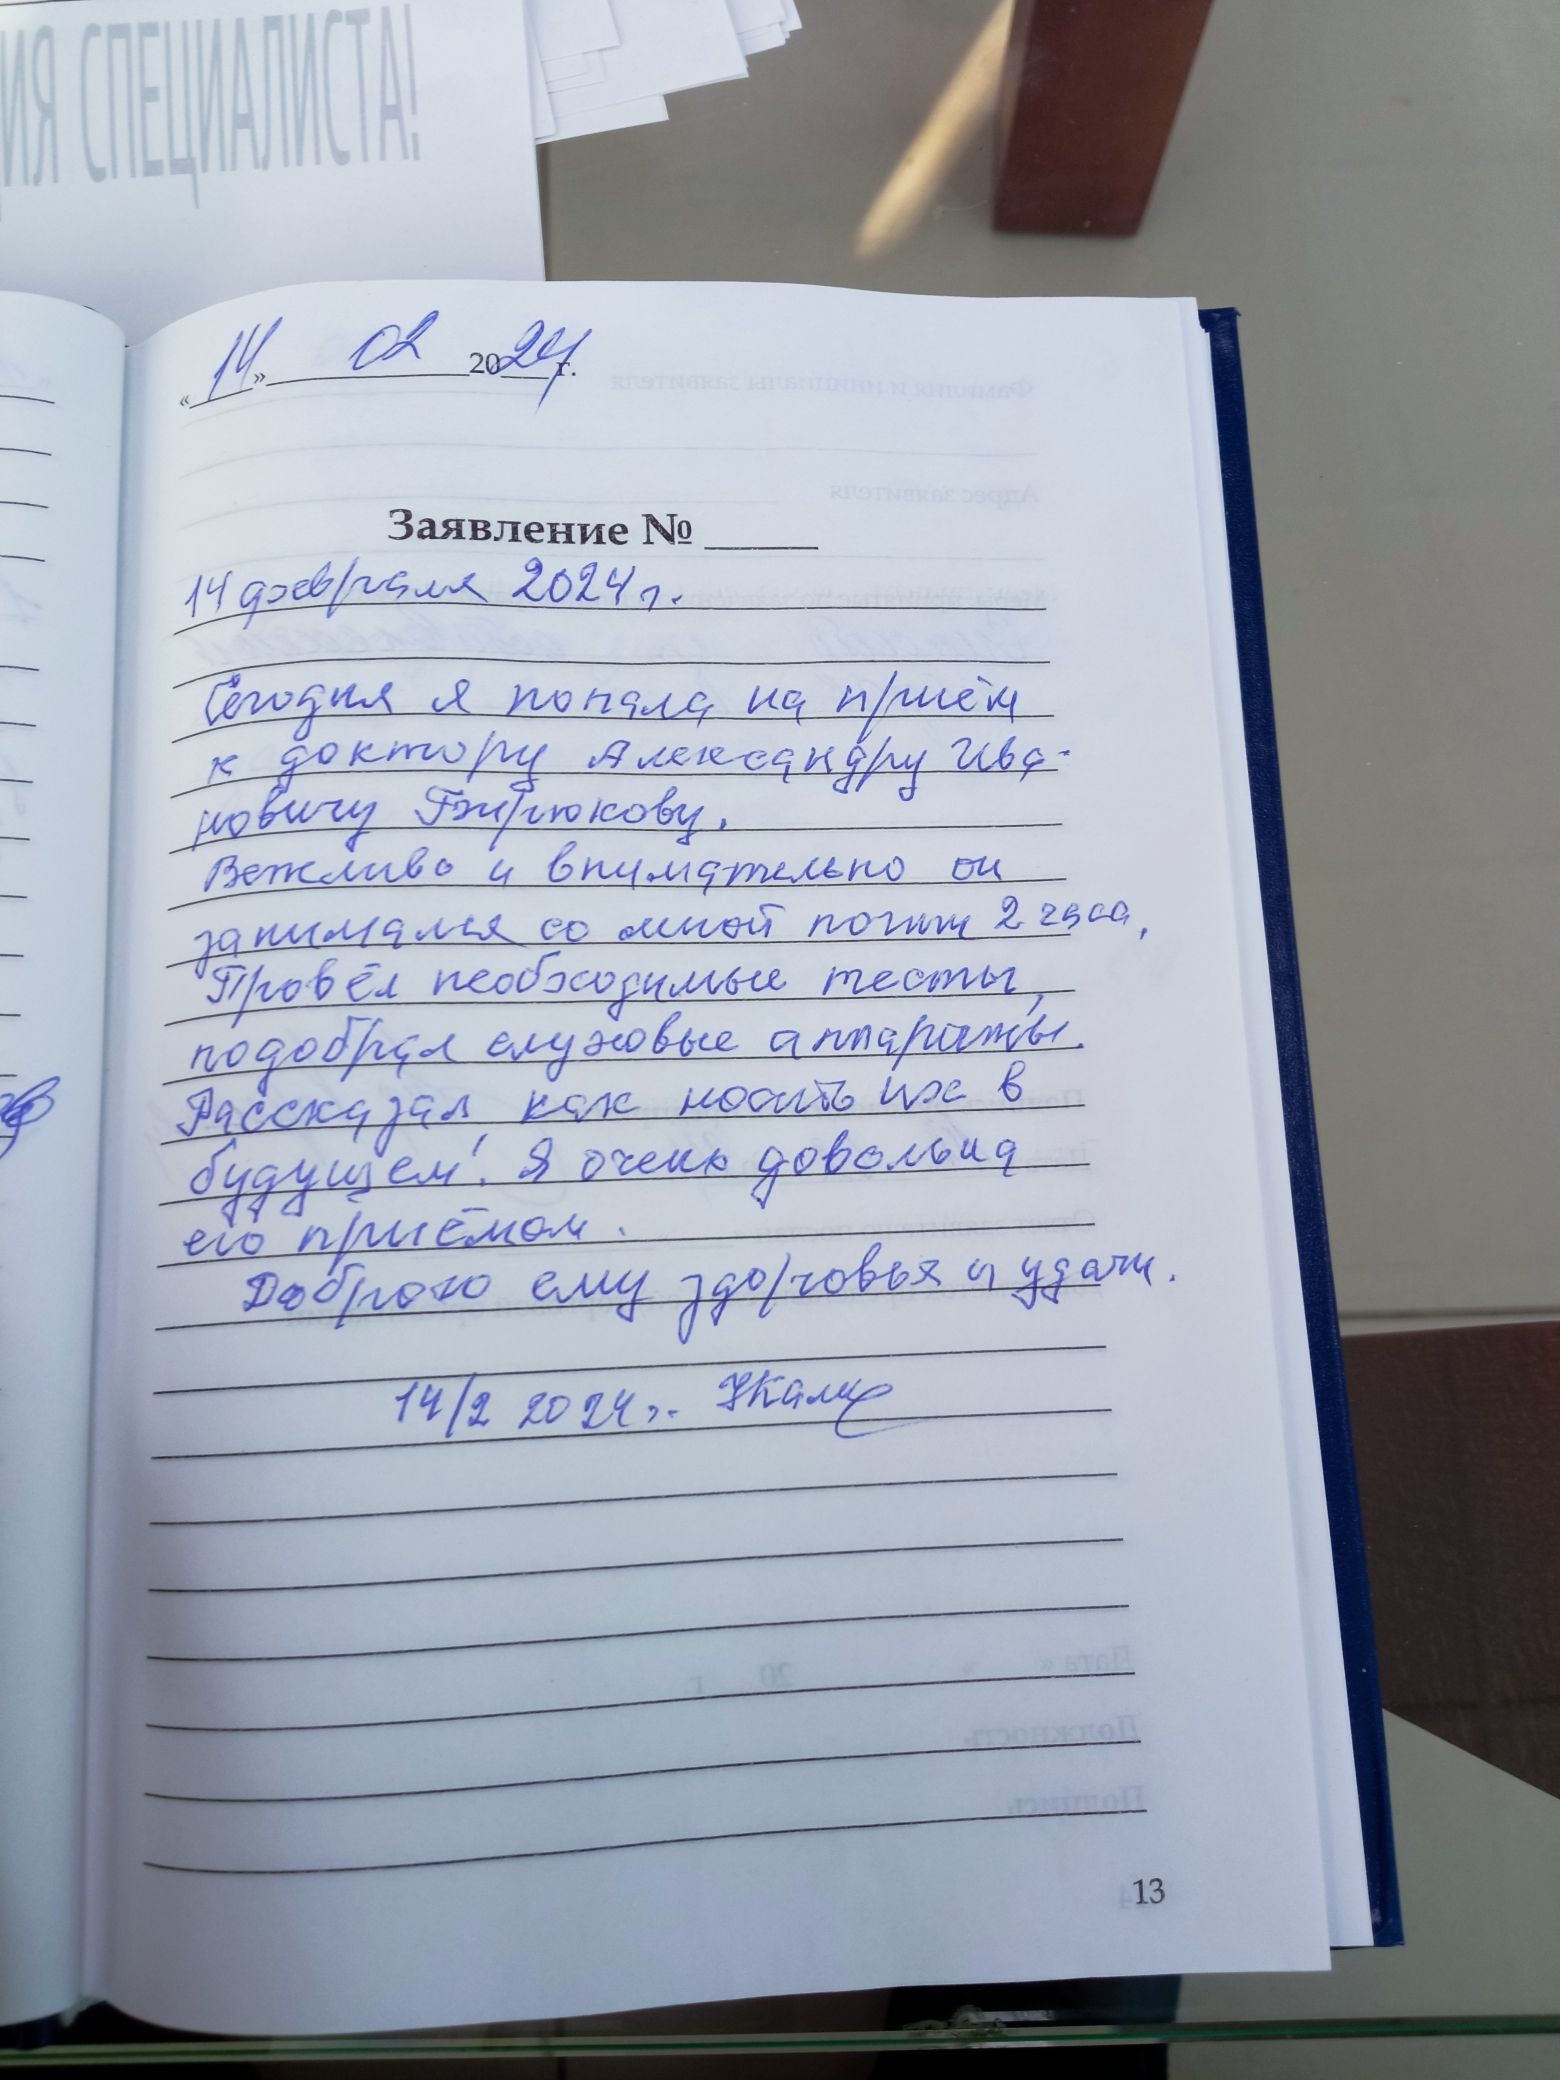 ИЯ СПЕЦИАЛИСТА!
«14» 02 2024 г.
Заявление № ____
14 февраля 2024 г.
Сегодня я попала на приём
к доктору Александру Ива-
новичу Бирюкову.
Вежливо и внимательно он
занимался со мной почти 2 часа,
Провёл необходимые тесты,
подобрал слуховые аппараты.
Рассказал как носить их в
будущем! Я очень довольна
его приёмом.
Доброго ему здоровья и удачи.
14/2 2024 г.
13